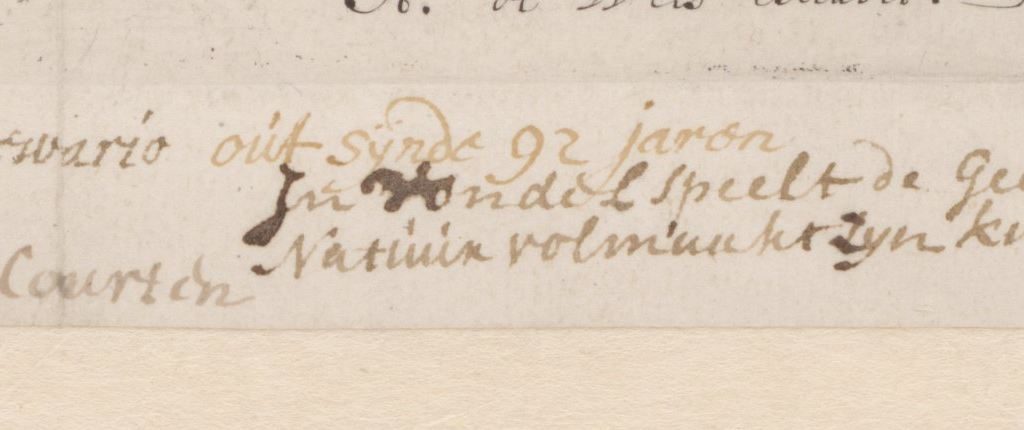 oút synde 92 jaren
In Vondel speelt de Gee
Natuur volmaakt zyn ku
Courten